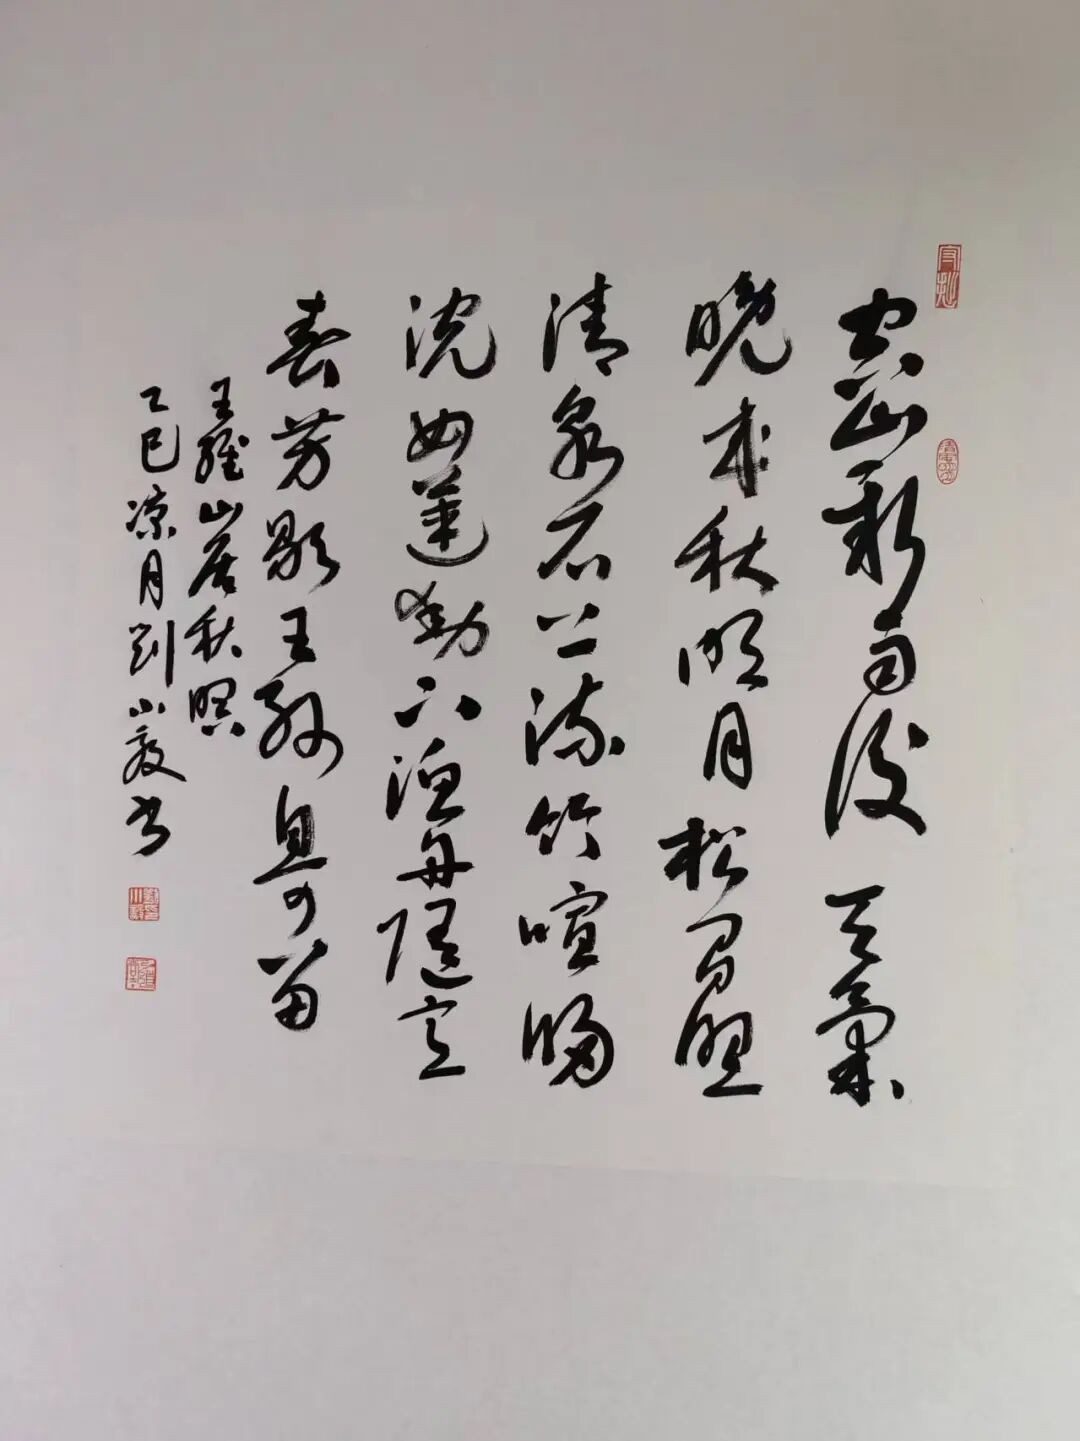 守拙
空山新雨後天氣
晚来秋明月松間照
清泉石上流竹喧歸
浣女蓮動下漁舟隨意
春芳歇王孫自可留
王維山居秋暝
乙巳凉月劉小书